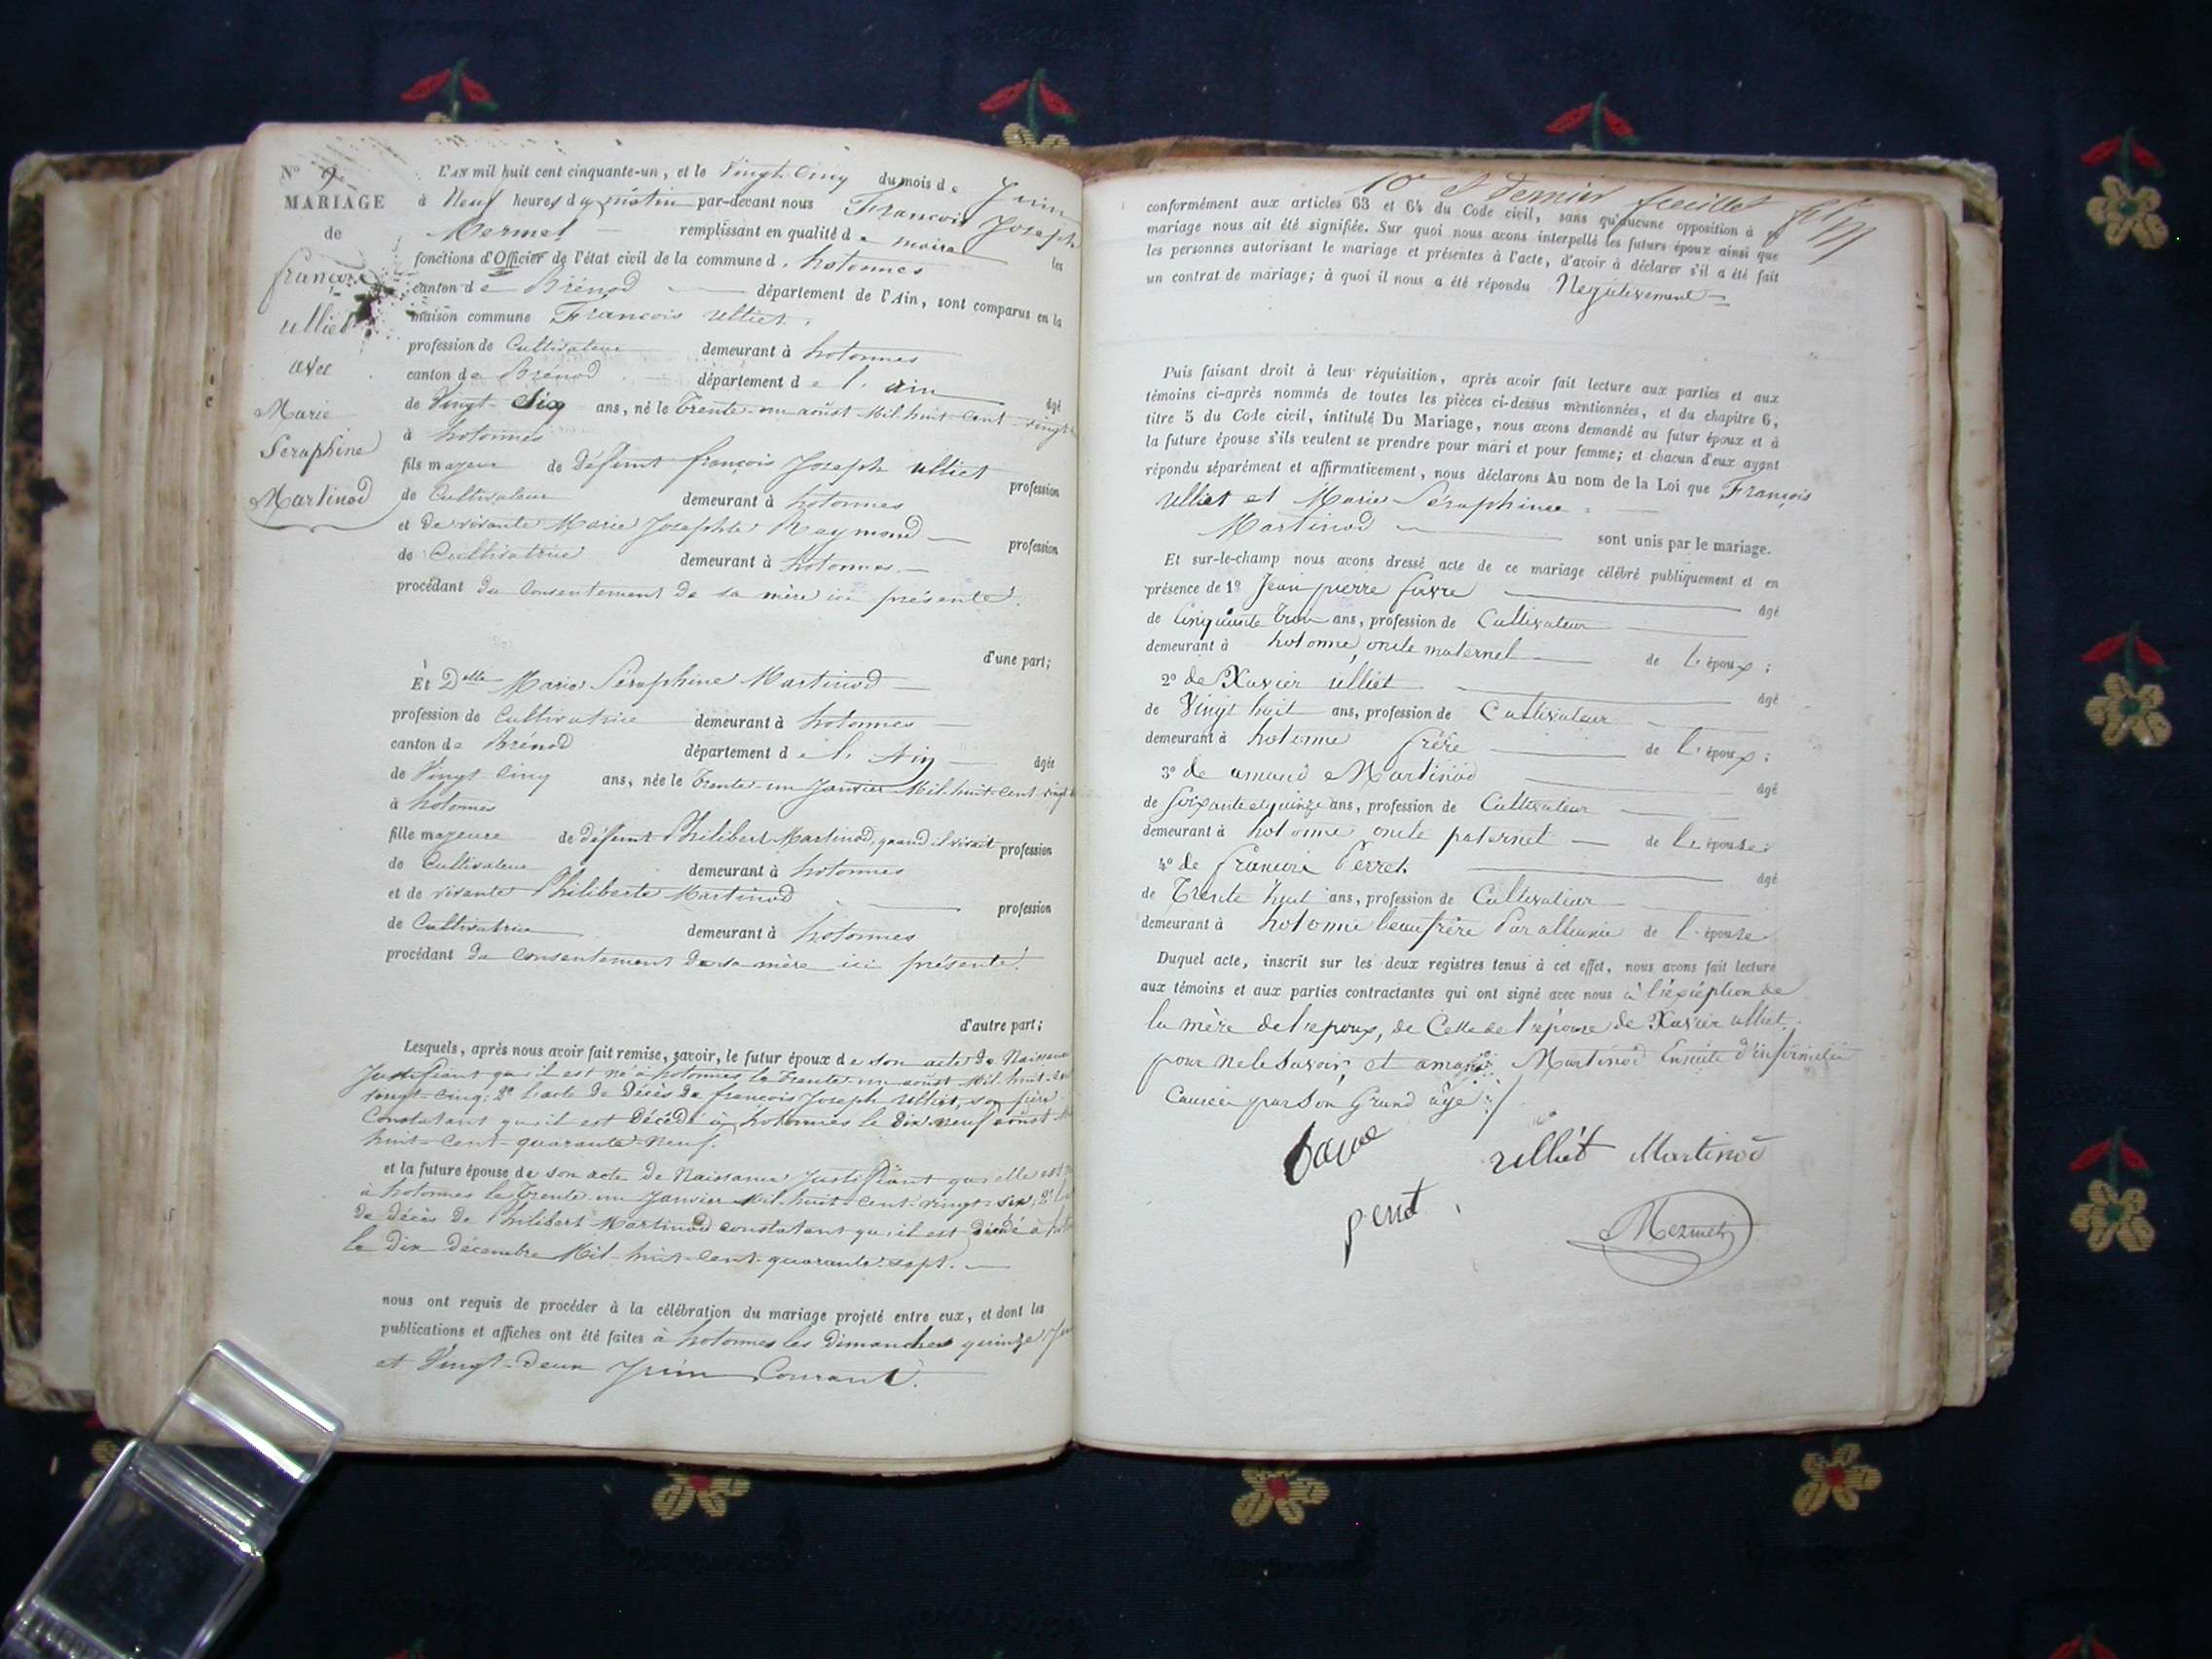 N° 9
MARIAGE
de
françois
ulliet
avec
Marie
Séraphine
Martinod
L'AN mil huit cent cinquante-un, et le Vingt-Cinq du mois de Juin
à Neuf heures du matin par-devant nous François Joseph
Mermet remplissant en qualité de maire les
fonctions d'Officier de l'état civil de la commune d. hotonnes
canton de Brénod département de l'Ain, sont comparus en la
maison commune François Ulliet.
profession de Cultivateur demeurant à hotonnes
canton de Brénod département de l. ain âgé
de Vingt-Six ans, né le Trente-un août Mil huit cent vingt
à hotonnes
fils majeur de défunt françois Joseph ulliet profession
de Cultivateur demeurant à hotonnes
et de vivante Marie Josephte Raymond profession
de Cultivatrice demeurant à hotonnes
procédant du Consentement de sa mère ici présente.
d'une part;
Et Delle Marie Séraphine Martinod
profession de Cultivatrice demeurant à hotonnes
canton de Brénod département de l. Ain âgée
de Vingt-Cinq ans, née le Trente-un Janvier Mil-huit-Cent vingt
à hotonnes
fille majeure de défunt Philibert Martinod, quand il vivait profession
de Cultivateur demeurant à hotonnes
et de vivante Philiberte Martinod profession
de Cultivatrice demeurant à hotonnes
procédant du Consentement de sa mère ici présente.
d'autre part;
Lesquels, après nous avoir fait remise, savoir, le futur époux de son acte de Naissance
Justifiant qu'il est né à hotonnes le Trente-un août Mil-huit-cent
vingt-cinq; 2° l'acte de Décès de françois Joseph Ulliet, son père
Constatant qu'il est Décédé à hotonnes le Dix-neuf août
huit-Cent-quarante-Neuf.
et la future épouse de son acte de Naissance Justifiant qu'elle est
à hotonnes le Trente-un Janvier Mil-huit-Cent-vingt-six; 2°
de décès de Philibert Martinod constatant qu'il est Décédé à
le Dix Décembre Mil-huit-Cent-quarante-sept.
nous ont requis de procéder à la célébration du mariage projeté entre eux, et dont les
publications et affiches ont été faites à hotonnes les Dimanches quinze
et Vingt-Deux Juin Courant.
10e et Dernier feuillet
conformément aux articles 63 et 64 du Code civil, sans qu'aucune opposition à ce
mariage nous ait été signifiée. Sur quoi nous avons interpellé les futurs époux ainsi que
les personnes autorisant le mariage et présentes à l'acte, d'avoir à déclarer s'il a été fait
un contrat de mariage; à quoi il nous a été répondu Négativement
Puis faisant droit à leur réquisition, après avoir fait lecture aux parties et aux
témoins ci-après nommés de toutes les pièces ci-dessus mentionnées, et du chapitre 6,
titre 5 du Code civil, intitulé Du Mariage, nous avons demandé au futur époux et à
la future épouse s'ils veulent se prendre pour mari et pour femme; et chacun d'eux ayant
répondu séparément et affirmativement, nous déclarons Au nom de la Loi que François
Ulliet et Marie Séraphine
Martinod sont unis par le mariage.
Et sur-le-champ nous avons dressé acte de ce mariage célébré publiquement et en
présence de 1° Jean pierre favre âgé
de Cinquante trois ans, profession de Cultivateur
demeurant à hotonne, oncle maternel de l'époux;
2° de Xavier ulliet âgé
de Vingt huit ans, profession de Cultivateur
demeurant à hotonne frère de l'époux;
3° de amand Martinod âgé
de soixante et quinze ans, profession de Cultivateur
demeurant à hotonne oncle paternel de l'épouse;
4° de françois Perret âgé
de Trente huit ans, profession de Cultivateur
demeurant à hotonne beaufrère Par alliance de l'épouse
Duquel acte, inscrit sur les deux registres tenus à cet effet, nous avons fait lecture
aux témoins et aux parties contractantes qui ont signé avec nous à l'éxception de
la mère de l'epoux, de Celle de l'épouse de Xavier ulliet.
pour ne le savoir, et amand Martinod Ensuite d'infirmitée
Causée par son Grand âge
favre ulliet Martinod
peret
Mermet